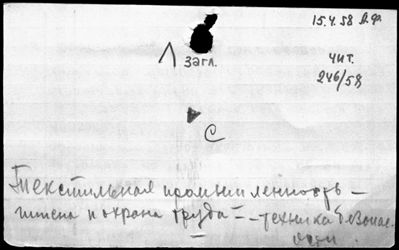 15.4.58 В.Ф.
Загл.
чит.
246/58
С
Текстильная промышленность —
гигиена и охрана труда — — техника безопас-
ности.